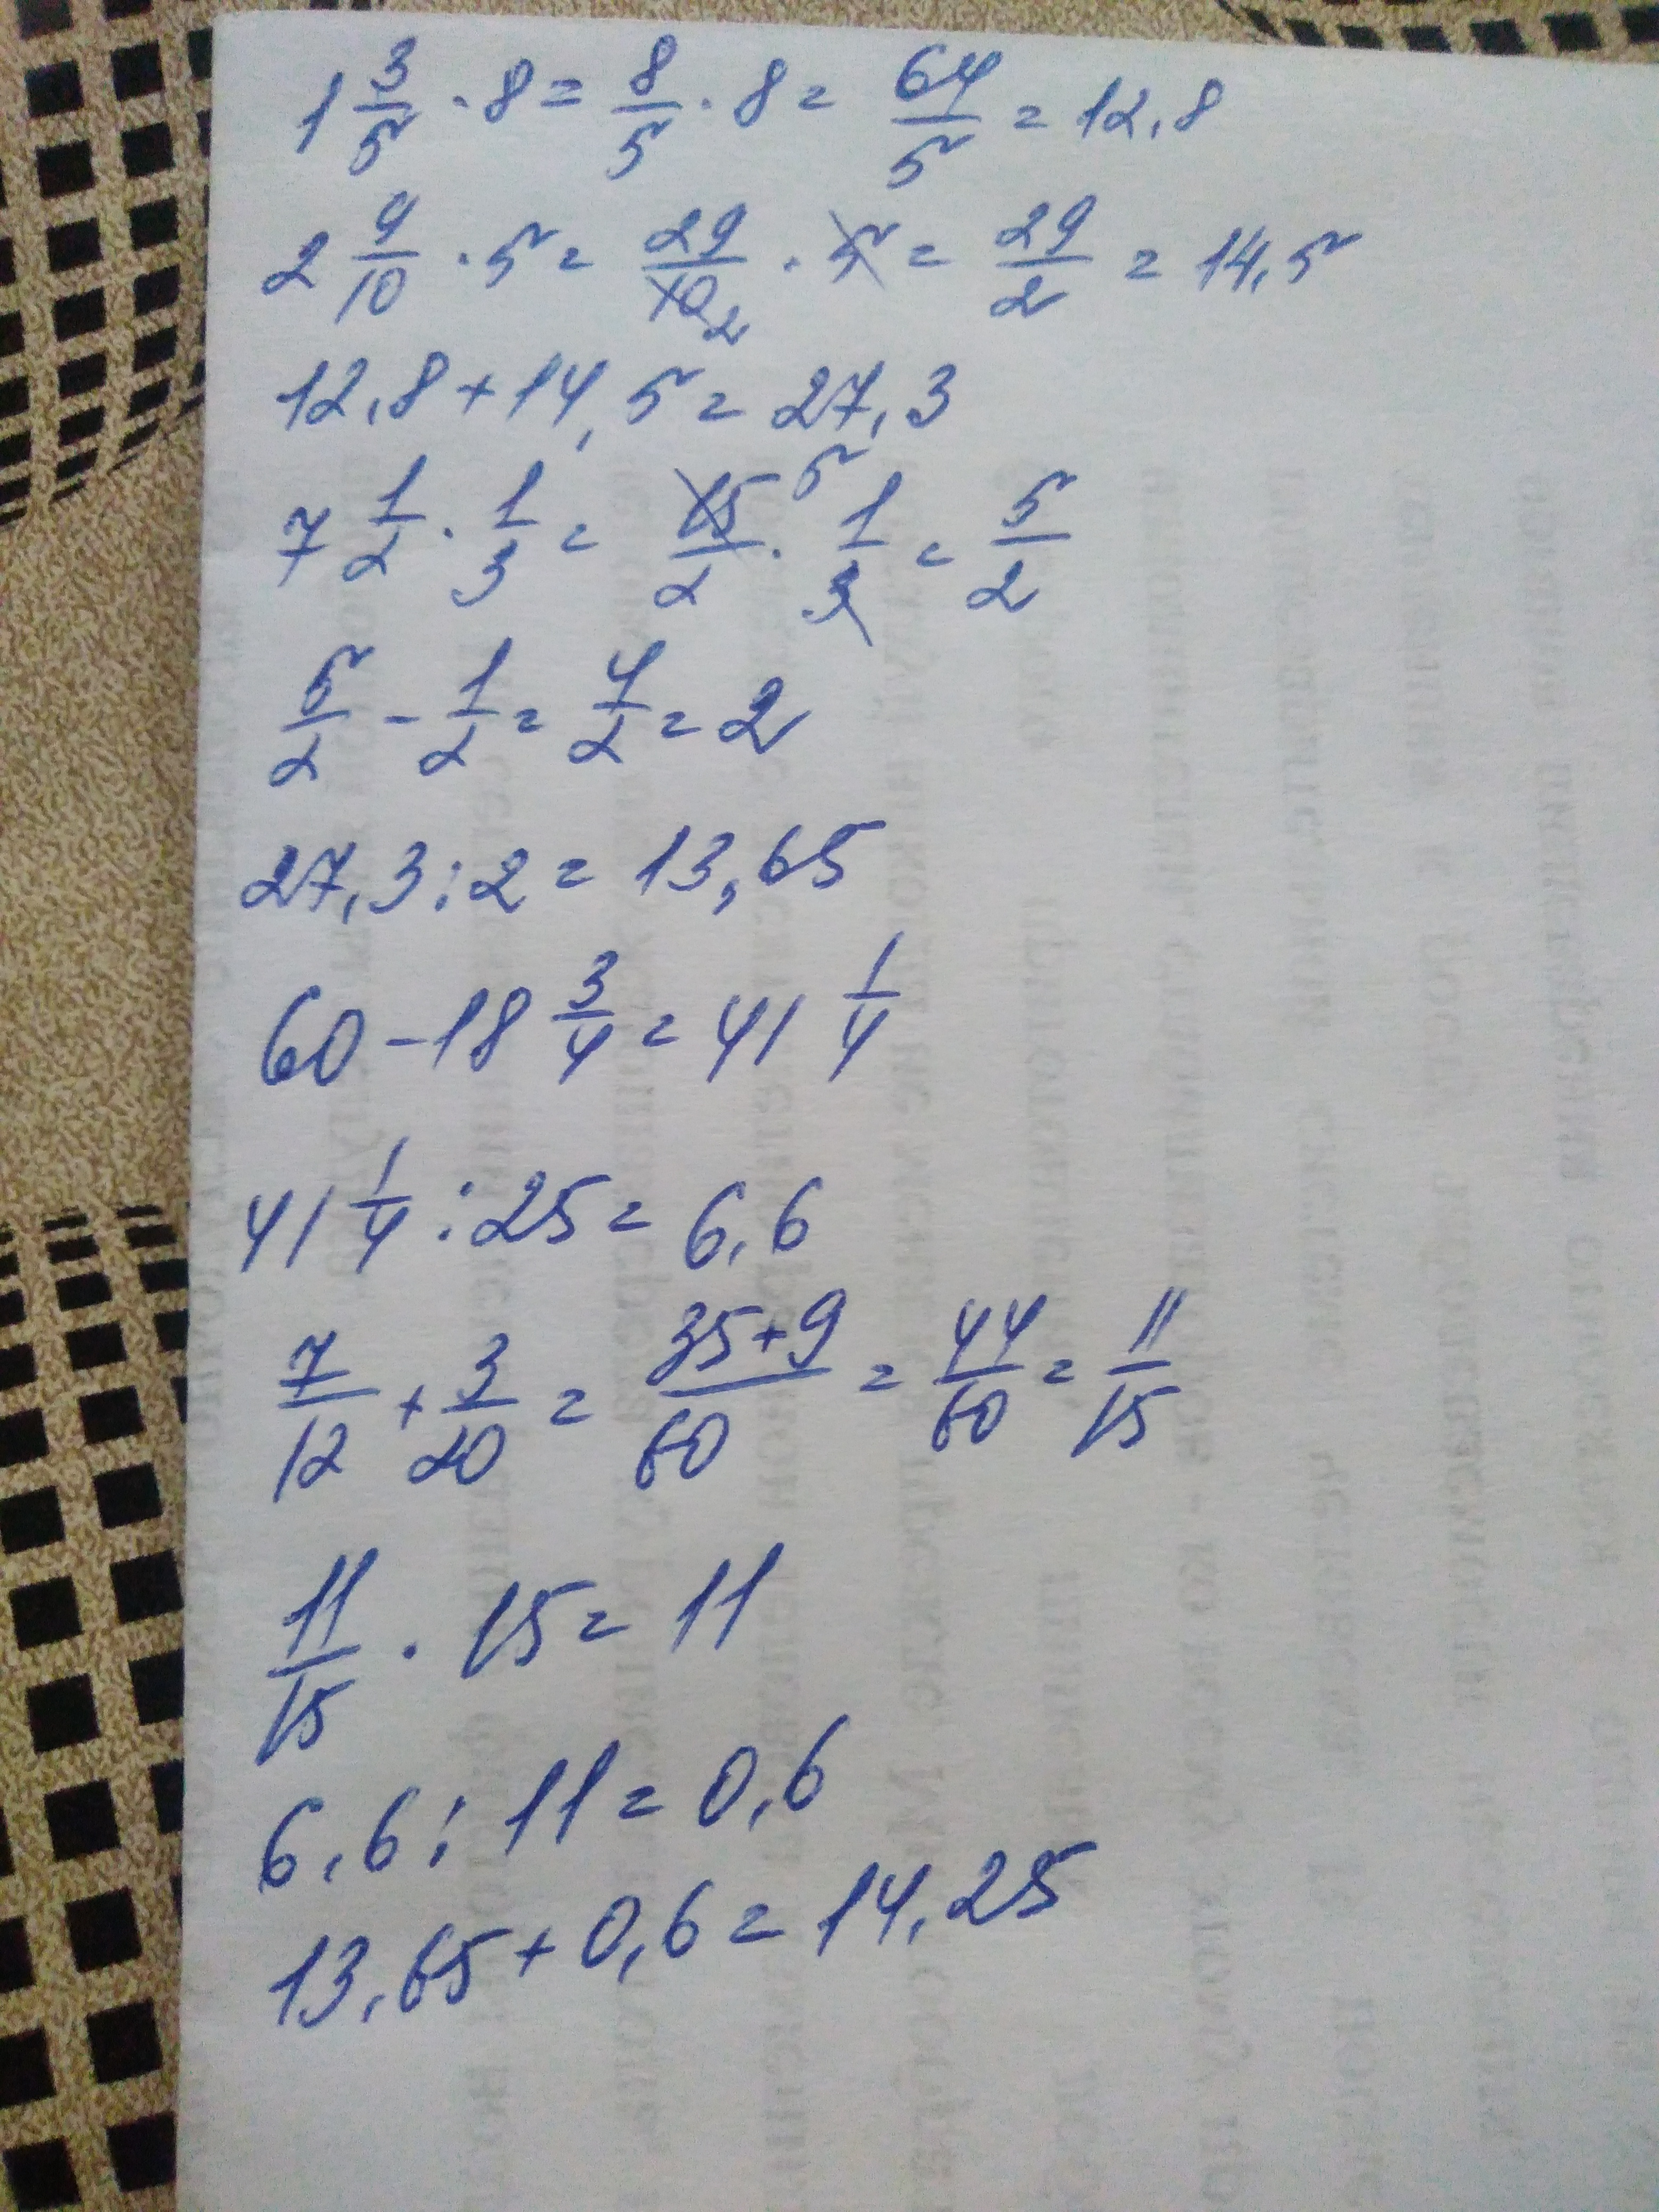 1 3/5 · 8 = 8/5 · 8 = 64/5 = 12,8
2 9/10 · 5 = 29/10 2 · 5 = 29/2 = 14,5
12,8 + 14,5 = 27,3
7 1/2 · 1/3 = 15/2 5 · 1/3 = 5/2
5/2 - 1/2 = 4/2 = 2
27,3 : 2 = 13,65
60 - 18 3/4 = 41 1/4
41 1/4 : 25 = 6,6
7/12 + 3/20 = 35+9/60 = 44/60 = 11/15
11/15 · 15 = 11
6,6 : 11 = 0,6
13,65 + 0,6 = 14,25